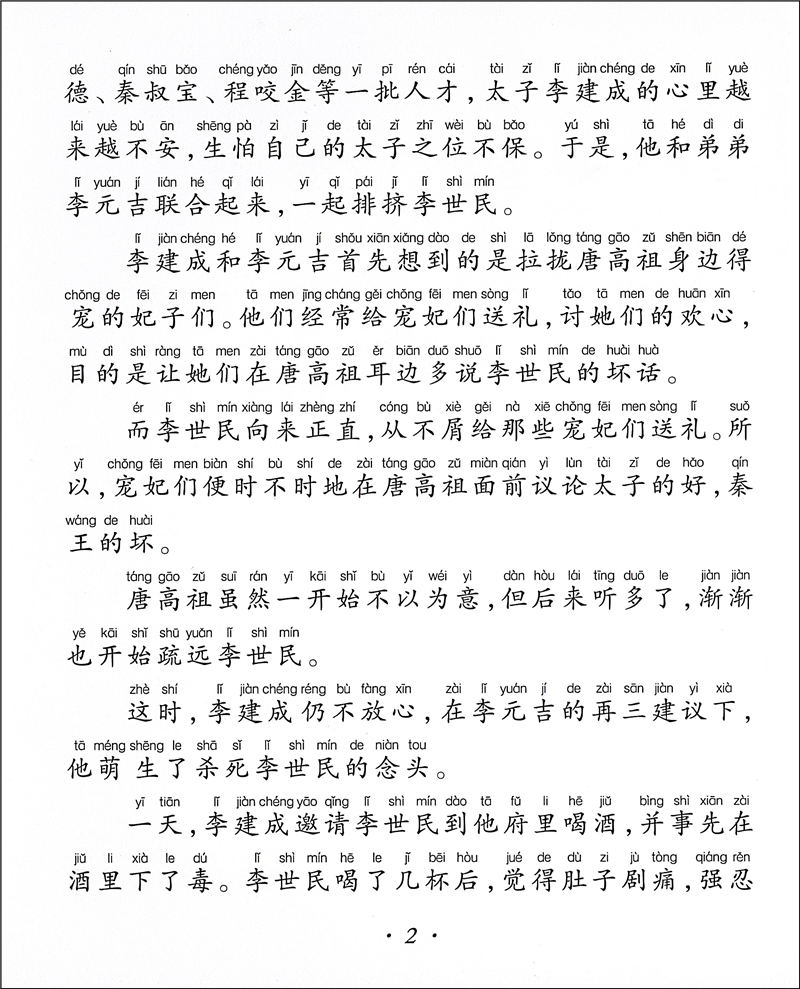 dé qín shū bǎo chéng yǎo jīn děng yī pī rén cái tài zǐ lǐ jiàn chéng de xīn lǐ yuè
德、秦叔宝、程咬金等一批人才，太子李建成的心里越
lái yuè bù ān shēng pà zì jǐ de tài zǐ zhī wèi bù bǎo yú shì tā hé dì di
来越不安，生怕自己的太子之位不保。于是，他和弟弟
lǐ yuán jí lián hé qǐ lái yī qǐ pái jǐ lǐ shì mín
李元吉联合起来，一起排挤李世民。
lǐ jiàn chéng hé lǐ yuán jí shǒu xiān xiǎng dào de shì lā lǒng táng gāo zǔ shēn biān dé
李建成和李元吉首先想到的是拉拢唐高祖身边得
chǒng de fēi zi men tā men jīng cháng gěi chǒng fēi men sòng lǐ tǎo tā men de huān xīn
宠的妃子们。他们经常给宠妃们送礼，讨她们的欢心，
mù dì shì ràng tā men zài táng gāo zǔ ěr biān duō shuō lǐ shì mín de huài huà
目的是让她们在唐高祖耳边多说李世民的坏话。
ér lǐ shì mín xiàng lái zhèng zhí cóng bù xiè gěi nà xiē chǒng fēi men sòng lǐ suǒ
而李世民向来正直，从不屑给那些宠妃们送礼。所
yǐ chǒng fēi men biàn shí bù shí de zài táng gāo zǔ miàn qián yì lùn tài zǐ de hǎo qín
以，宠妃们便时不时地在唐高祖面前议论太子的好，秦
wáng de huài
王的坏。
táng gāo zǔ suī rán yī kāi shǐ bù yǐ wéi yì dàn hòu lái tīng duō le jiàn jiàn
唐高祖虽然一开始不以为意，但后来听多了，渐渐
yě kāi shǐ shū yuǎn lǐ shì mín
也开始疏远李世民。
zhè shí lǐ jiàn chéng réng bù fàng xīn zài lǐ yuán jí de zài sān jiàn yì xià
这时，李建成仍不放心，在李元吉的再三建议下，
tā méng shēng le shā sǐ lǐ shì mín de niàn tou
他萌生了杀死李世民的念头。
yī tiān lǐ jiàn chéng yāo qǐng lǐ shì mín dào tā fǔ li hē jiǔ bìng shì xiān zài
一天，李建成邀请李世民到他府里喝酒，并事先在
jiǔ li xià le dú lǐ shì mín hē le jǐ bēi hòu jué de dù zi jù tòng qiáng rěn
酒里下了毒。李世民喝了几杯后，觉得肚子剧痛，强忍
· 2 ·